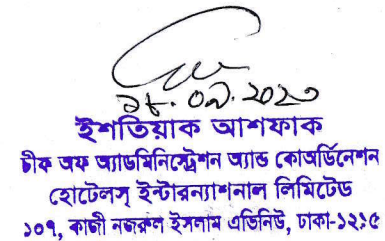 ১৮.০৯.২০২৩
ইশতিয়াক আশফাক
চীফ অফ অ্যাডমিনিস্ট্রেশন অ্যান্ড কোঅর্ডিনেশন
হোটেলস্ ইন্টারন্যাশনাল লিমিটেড
১০৭, কাজী নজরুল ইসলাম এভিনিউ, ঢাকা-১২১৫